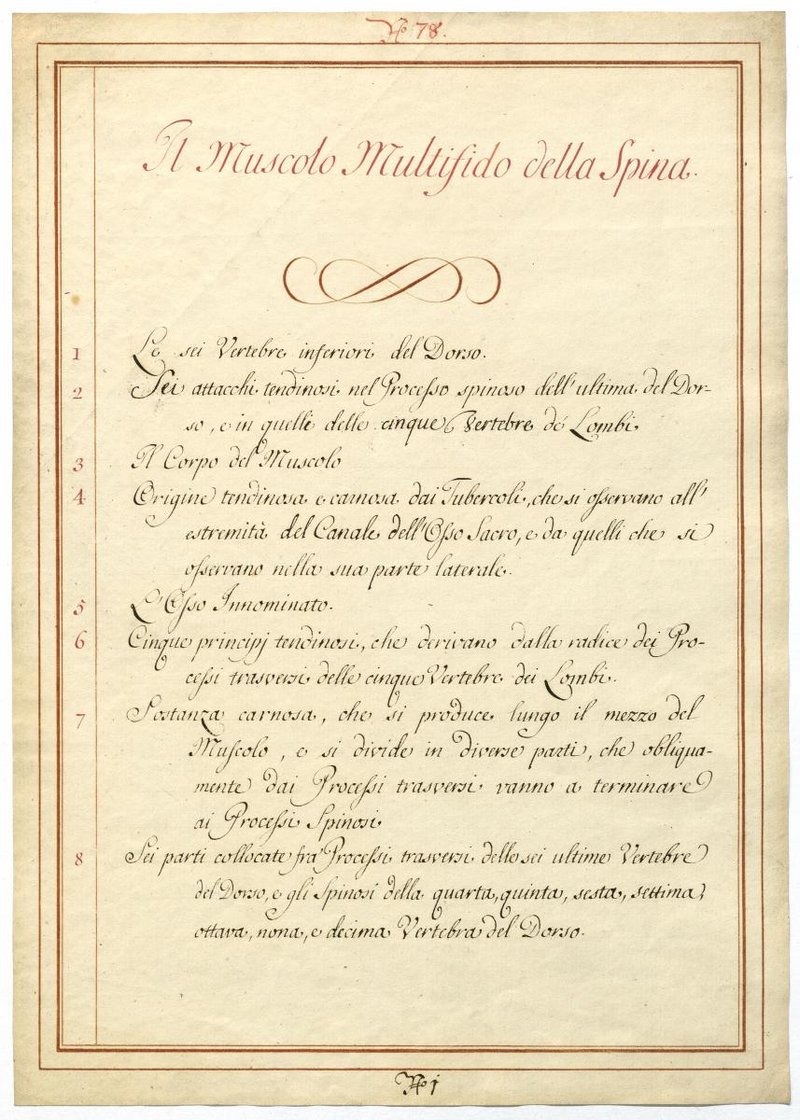 Nº 78.
Il Muscolo Multifido della Spina.
1 Le sei Vertebre inferiori del Dorso.
2 Sei attacchi tendinosi nel Processo spinoso dell'ultima del Dor-
so, e in quelli delle cinque Vertebre dé Lombi.
3 Il Corpo del Muscolo
4 Origine tendinosa e carnosa dai Tubercoli, che si osservano all'
estremità del Canale dell'Osso Sacro, e da quelli che si
osservano nella sua parte laterale.
5 L'Osso Innominato.
6 Cinque principj tendinosi, che derivano dalla radice dei Pro-
cessi trasversi delle cinque Vertebre dei Lombi.
7 Sostanza carnosa, che si produce lungo il mezzo del
Muscolo, e si divide in diverse parti, che obliqua-
mente dai Processi trasversi vanno a terminare
ai Processi Spinosi.
8 Sei parti collocate fra' Processi trasversi delle sei ultime Vertebre
del Dorso, e gli Spinosi della quarta, quinta, sesta, settima,
ottava, nona, e decima Vertebra del Dorso.
Nº 1